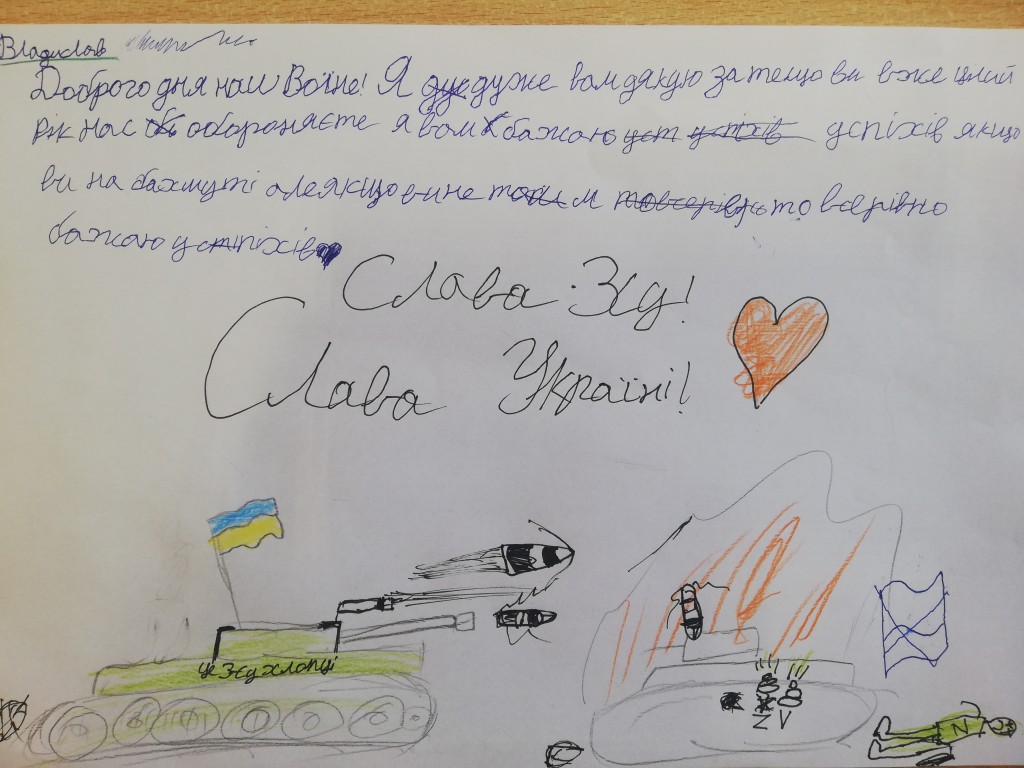 Владислав
Доброго дня наш Воїне! Я дуже вам дякую за те що ви вже цілий
рік нас обороняєте я вам бажаю успіхів якщо
ви на бахмуті але якщо ви не там то всерівно
бажаю успіхів
Слава ЗСУ!
Слава Україні!
це Зсу хлопці
Z V
Z